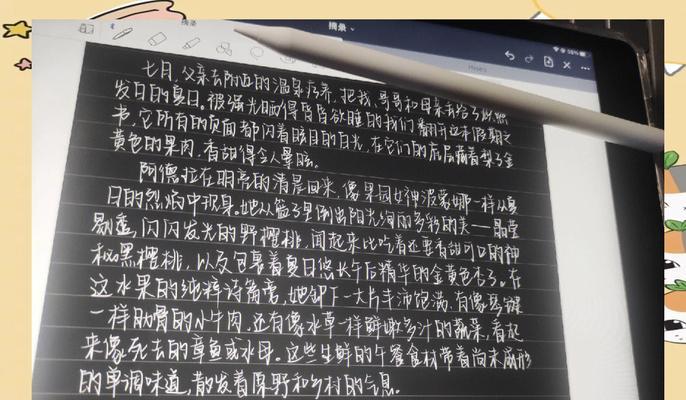 摘录
摘录
58%
七月,父亲去附近的温泉疗养,把我、哥哥和母亲丢给了炽热
发白的夏日,被强光晒得昏昏欲睡的我们翻开这本假期之
书,它所有的页面都闪着眩目的白光,在它们的底层藏着梨子金
黄色的果肉,香甜得令人晕眩。
阿德拉在明亮的清晨回来,像果园女神波蒙娜一样从夏
日的烈焰中现身。她从篮子里倒出阳光绚丽多彩的美——晶莹
剔透、闪闪发光的野樱桃,闻起来比吃着还要香甜可口的神
秘黑樱桃,以及包裹着夏日悠长午后精华的金黄色杏子。在
这水果的纯粹诗篇旁,她卸下一大片丰沛饱满、有像琴键
一样肋骨的小牛肉,还有像水草一样鲜嫩多汁的蔬菜,看起
来像死去的章鱼或水母。这些生鲜的午餐食材带着尚未成形
的单调味道,散发着原野和乡村的气息。